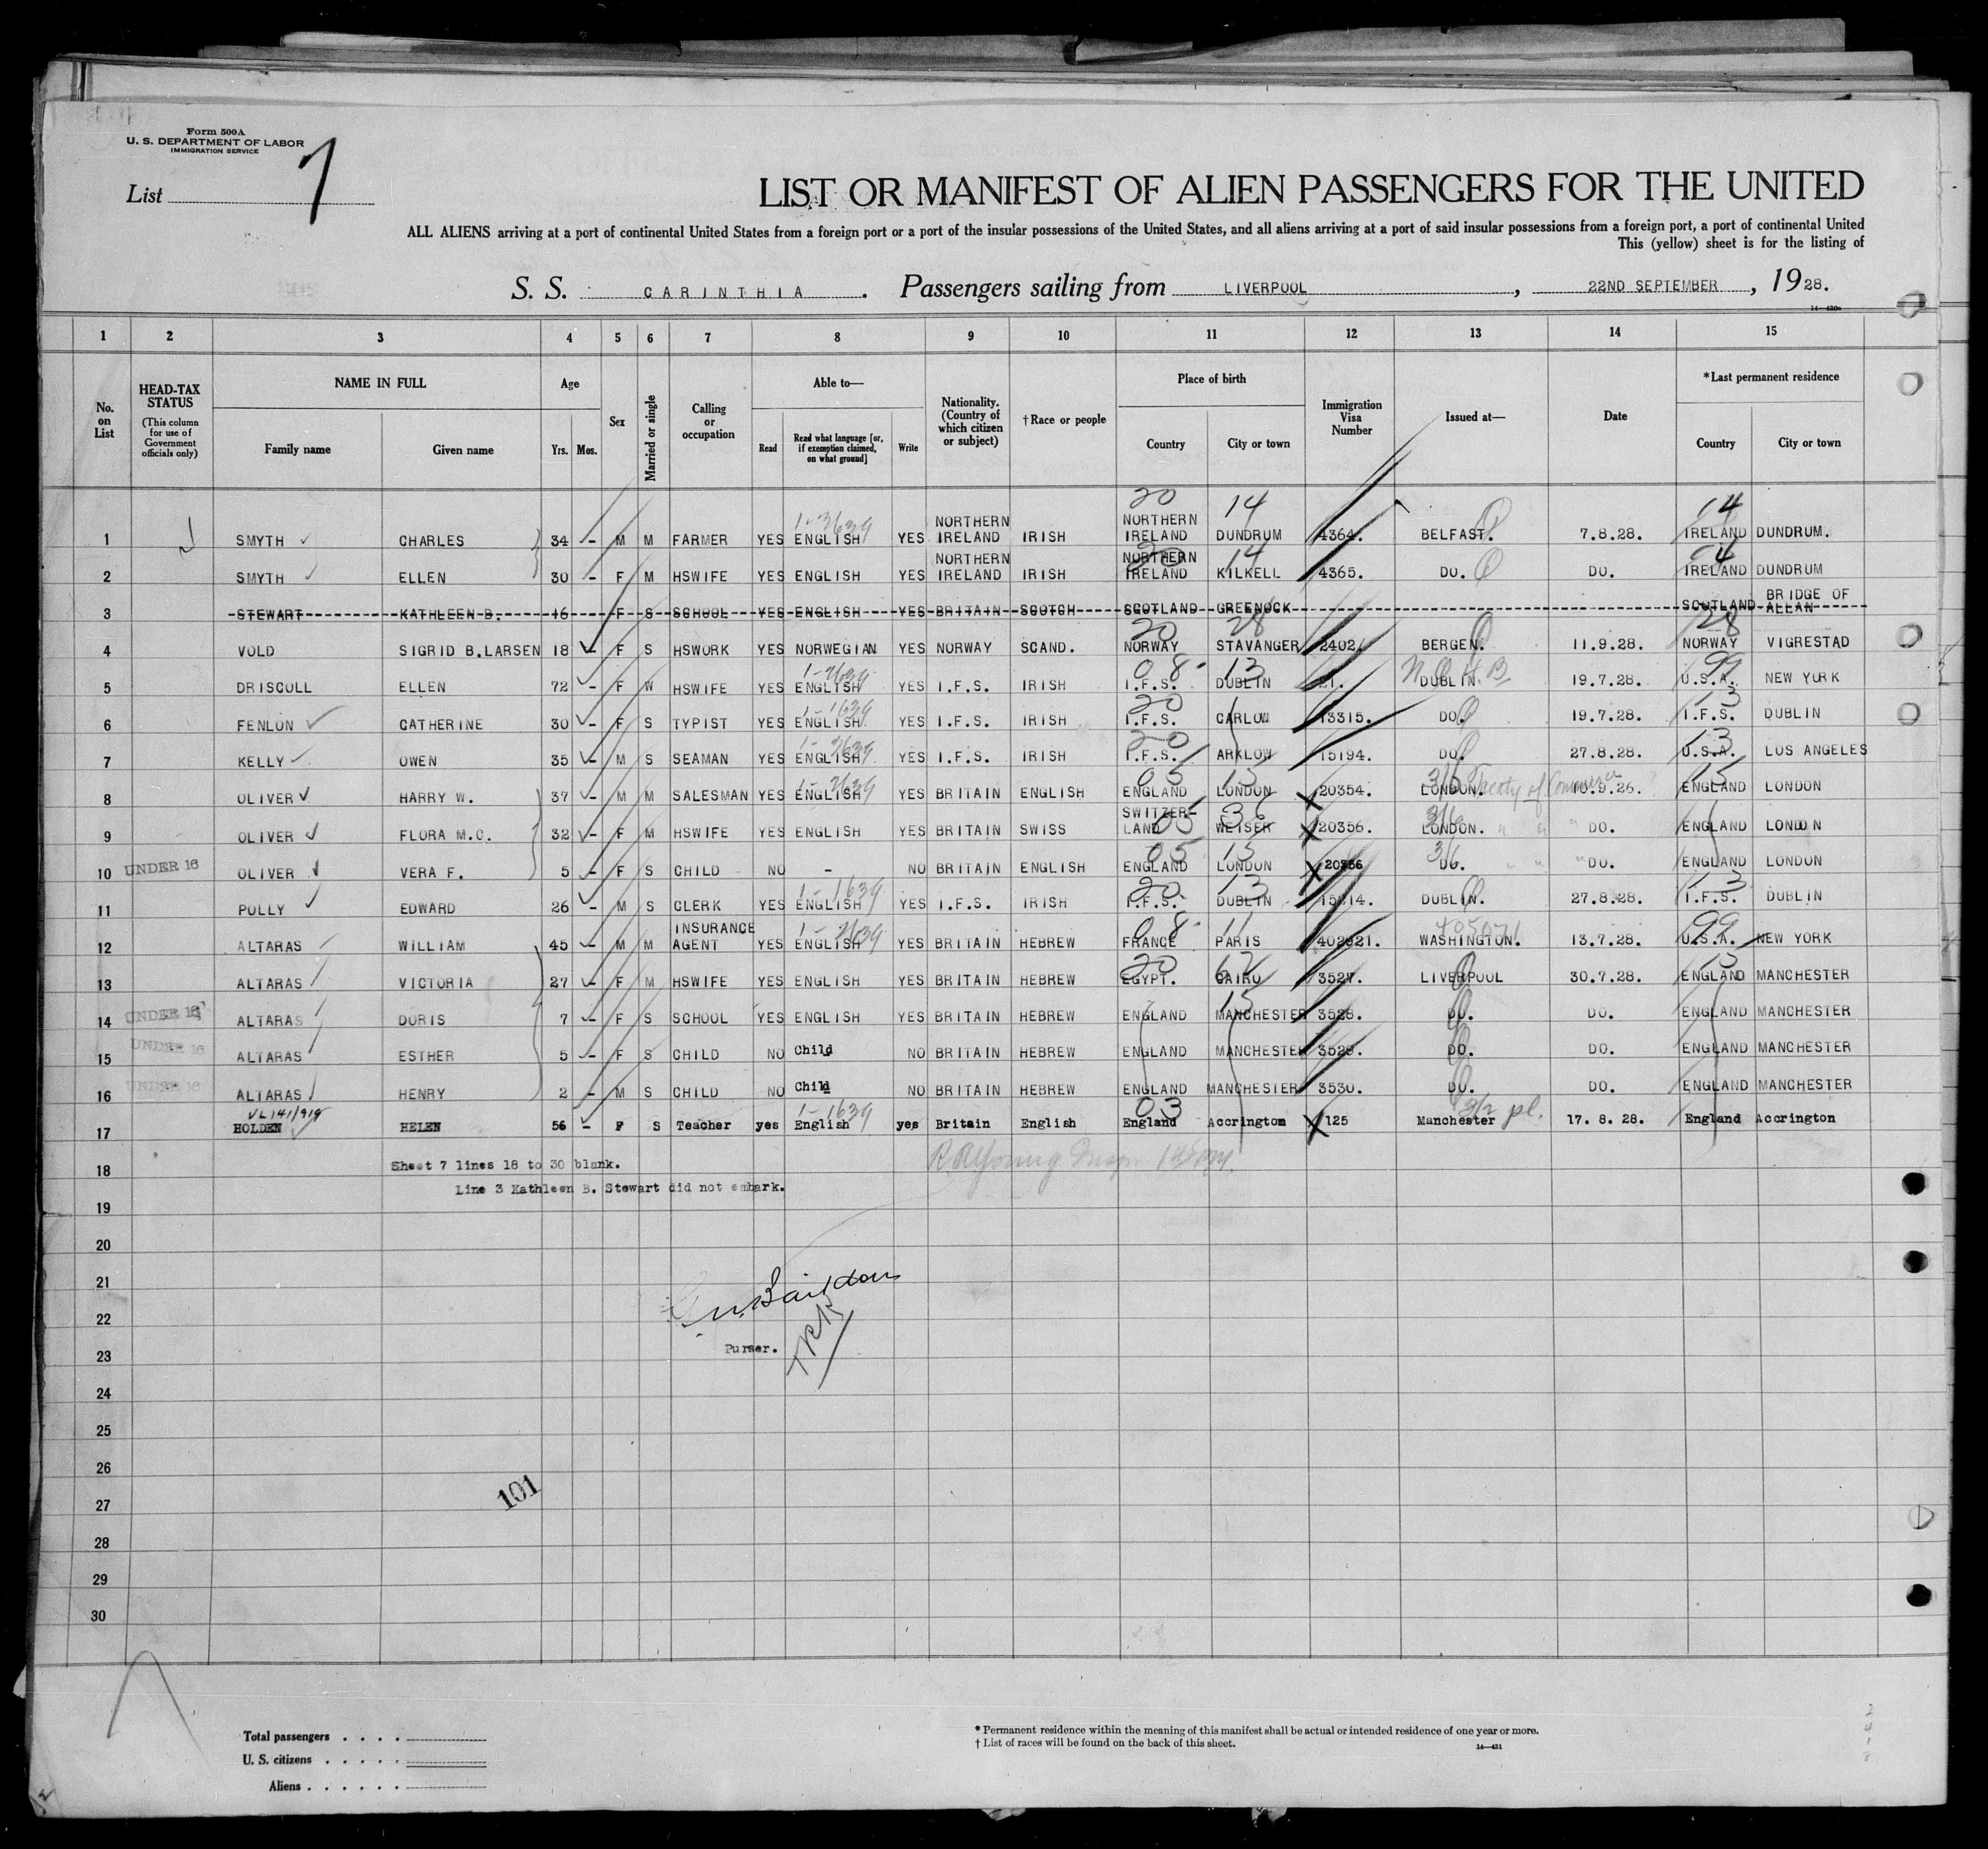 Form 500A
U. S. DEPARTMENT OF LABOR
IMMIGRATION SERVICE
List 7
LIST OR MANIFEST OF ALIEN PASSENGERS FOR THE UNITED
ALL ALIENS arriving at a port of continental United States from a foreign port or a port of the insular possessions of the United States, and all aliens arriving at a port of said insular possessions from a foreign port, a port of continental United
This (yellow) sheet is for the listing of
S. S. CARINTHIA. Passengers sailing from LIVERPOOL, 22ND SEPTEMBER, 1928.
14—430a
1 2 3 4 5 6 7 8 9 10 11 12 13 14 15
No. on List
HEAD-TAX STATUS (This column for use of Government officials only)
NAME IN FULL
Family name Given name
Age
Yrs. Mos.
Sex
Married or single
Calling or occupation
Able to—
Read Read what language [or, if exemption claimed, on what ground] Write
Nationality. (Country of which citizen or subject)
†Race or people
Place of birth
Country City or town
Immigration Visa Number
Issued at—
Date
*Last permanent residence
Country City or town
20 14 14
1-3639
1 SMYTH CHARLES 34 - M M FARMER YES ENGLISH YES NORTHERN IRELAND IRISH NORTHERN IRELAND DUNDRUM 4364. BELFAST. 7.8.28. IRELAND DUNDRUM.
20 14
2 SMYTH ELLEN 30 - F M HSWIFE YES ENGLISH YES NORTHERN IRELAND IRISH NORTHERN IRELAND KILKELL 4365. DO. DO. IRELAND DUNDRUM
3 STEWART KATHLEEN B. 16 F S SCHOOL YES ENGLISH YES BRITAIN SCOTCH SCOTLAND GREENOCK SCOTLAND BRIDGE OF ALLAN
20 28 28
4 VOLD SIGRID B.LARSEN 18 - F S HSWORK YES NORWEGIAN YES NORWAY SCAND. NORWAY STAVANGER 2402. BERGEN. 11.9.28. NORWAY VIGRESTAD
1-2639 08- 13 99
5 DRISCOLL ELLEN 72 - F W HSWIFE YES ENGLISH YES I.F.S. IRISH I.F.S. DUBLIN DUBLIN. 19.7.28. U.S.A. NEW YORK
1-1639 20 13
6 FENLON CATHERINE 30 - F S TYPIST YES ENGLISH YES I.F.S. IRISH I.F.S. CARLOW 13315. DO. 19.7.28. I.F.S. DUBLIN
1-2639 20 13
7 KELLY OWEN 35 - M S SEAMAN YES ENGLISH YES I.F.S. IRISH I.F.S. ARKLOW 15194. DO. 27.8.28. U.S.A. LOS ANGELES
1-2639 05 13 3/6 Treaty of Commerce 15
8 OLIVER HARRY W. 37 - M M SALESMAN YES ENGLISH YES BRITAIN ENGLISH ENGLAND LONDON 20354. LONDON. 10.9.26. ENGLAND LONDON
05 36 3/6
9 OLIVER FLORA M.C. 32 - F M HSWIFE YES ENGLISH YES BRITAIN SWISS SWITZER-LAND WEISER 20356. LONDON. " " " DO. ENGLAND LONDON
05 13 3/6
10 UNDER 16 OLIVER VERA F. 5 - F S CHILD NO - NO BRITAIN ENGLISH ENGLAND LONDON 20356 DO. " " " DO. ENGLAND LONDON
1-1639 20 13 13
11 POLLY EDWARD 26 - M S CLERK YES ENGLISH YES I.F.S. IRISH I.F.S. DUBLIN DUBLIN. 27.8.28. I.F.S. DUBLIN
1-2639 08- 11 99
12 ALTARAS WILLIAM 45 - M M INSURANCE AGENT YES ENGLISH YES BRITAIN HEBREW FRANCE PARIS 402921. WASHINGTON. 13.7.28. U.S.A. NEW YORK
20 62 15
13 ALTARAS VICTORIA 27 - F M HSWIFE YES ENGLISH YES BRITAIN HEBREW EGYPT. CAIRO 3527. LIVERPOOL 30.7.28. ENGLAND MANCHESTER
15
14 UNDER 16 ALTARAS DORIS 7 - F S SCHOOL YES ENGLISH YES BRITAIN HEBREW ENGLAND MANCHESTER 3528. DO. DO. ENGLAND MANCHESTER
15 UNDER 16 ALTARAS ESTHER 5 - F S CHILD NO Child NO BRITAIN HEBREW ENGLAND MANCHESTER 3529. DO. DO. ENGLAND MANCHESTER
16 UNDER 16 ALTARAS HENRY 2 - M S CHILD NO Child NO BRITAIN HEBREW ENGLAND MANCHESTER 3530. DO. DO. ENGLAND MANCHESTER
VL141/919 1-1639 03 3/2 pl.
17 HOLDEN HELEN 56 - F S Teacher yes English yes Britain English England Accrington 125 Manchester 17. 8. 28. England Accrington
18 Sheet 7 lines 18 to 30 blank.
Line 3 Kathleen B. Stewart did not embark.
19
20
21
22
Purser.
23
24
25
26
101
27
28
29
30
Total passengers . . . .
U. S. citizens . . . . .
Aliens . . . . . .
* Permanent residence within the meaning of this manifest shall be actual or intended residence of one year or more.
† List of races will be found on the back of this sheet.
14—431